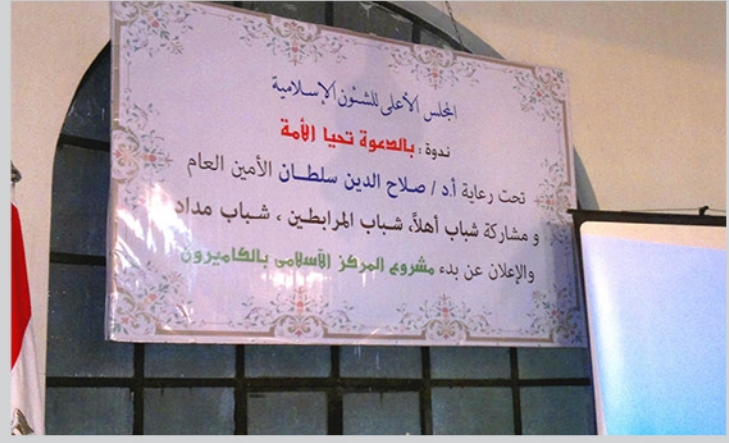 المجلس الأعلى للشئون الإسلامية
ندوة : بالدعوة تحيا الأمة
تحت رعاية أ.د / صلاح الدين سلطان الأمين العام
و مشاركة شباب أهلاً، شباب المرابطين ، شباب مداد
والإعلان عن بدء مشروع المركز الإسلامى بالكاميرون